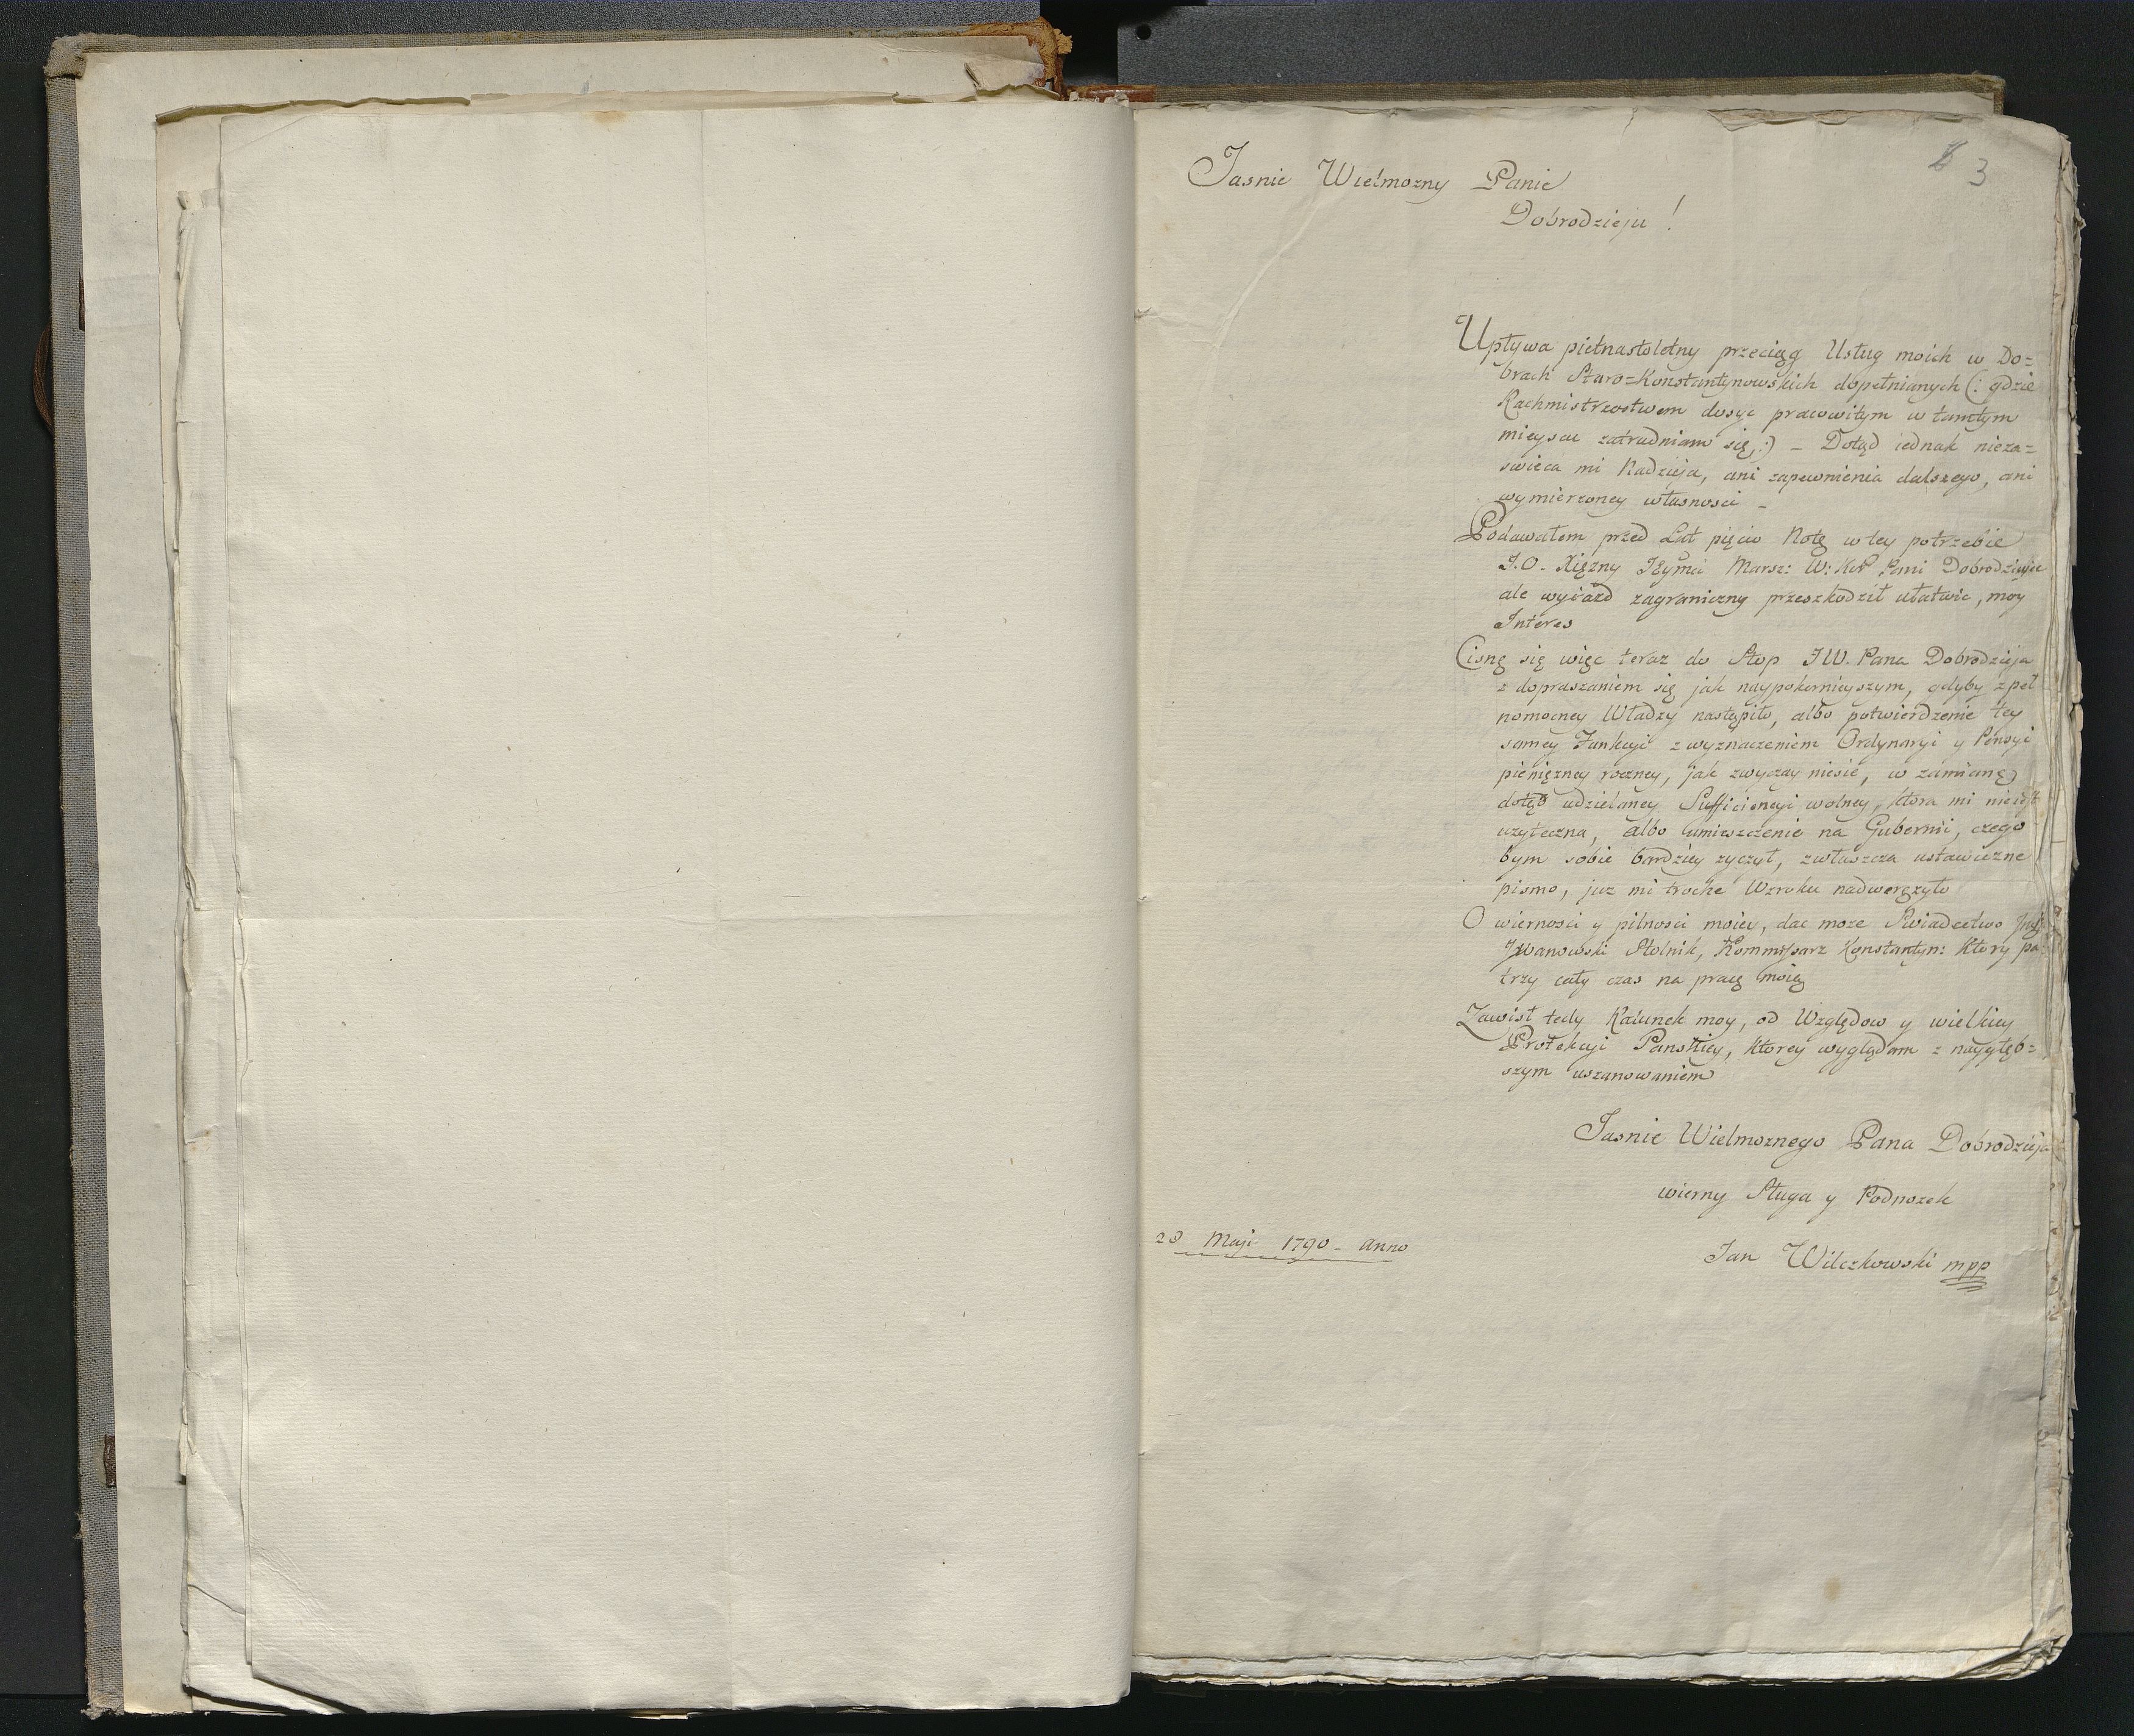 3
Jasnie Wielmozny Panie
Dobrodzieju!
Upływa pietnastoletny przeciąg Usług moich w Do=
brach Staro=Konstantynowskich dopełnianych (: gdzie
Rachmistrzostwem dosyc pracowitym w tamtym
mieyscu zatrudniam się :) – Dotąd iednak nieza=
swieca mi Nadzieja, ani zapewnienia dalszego, ani
wymierzoney własnosci –
Podawałem przed Lat pięcio Notę w tey potrzebie
J.O. Xiężny Jeymci Marsz: W: Kor Pani Dobrodziejce
ale wyiazd zagraniczny przeszkodził ułatwic, moy
Interes
Cisnę się więc teraz do Stop JW. Pana Dobrodzieja
z dopraszaniem się jak naypokornieyszym, gdyby z peł
nomocney Władzy nastąpiło, albo potwierdzenie tey
samey Funkcyi z wyznaczeniem Ordynaryi y Pensyi
pieniężney roczney, jak zwyczay niesie, w zamianę
dotąd udzielaney Sufficiencyi wolney, ktora mi nie jest
uzyteczna, albo umieszczenie na Gubernii, czego
bym sobie bardziey zyczył, zwłaszcza ustawiczne
pismo, juz mi troche Wzroku nadweręzyło
O wiernosci y pilnosci moiey, dac moze Swiadectwo
Iwanowski Stolnik, Kommissarz Konstantyn: ktory pa=
trzy cały czas na pracę moię
Zawisł tedy Ratunek moy, od Względow y wielkiey
Protekcyi Panskiey, ktorey wyglądam z naygłęb=
szym uszanowaniem
Jasnie Wielmoznego Pana Dobrodzieja
wierny Sługa y Podnozek
28 Maji 1790 – Anno
Jan Wilczkowski mpp